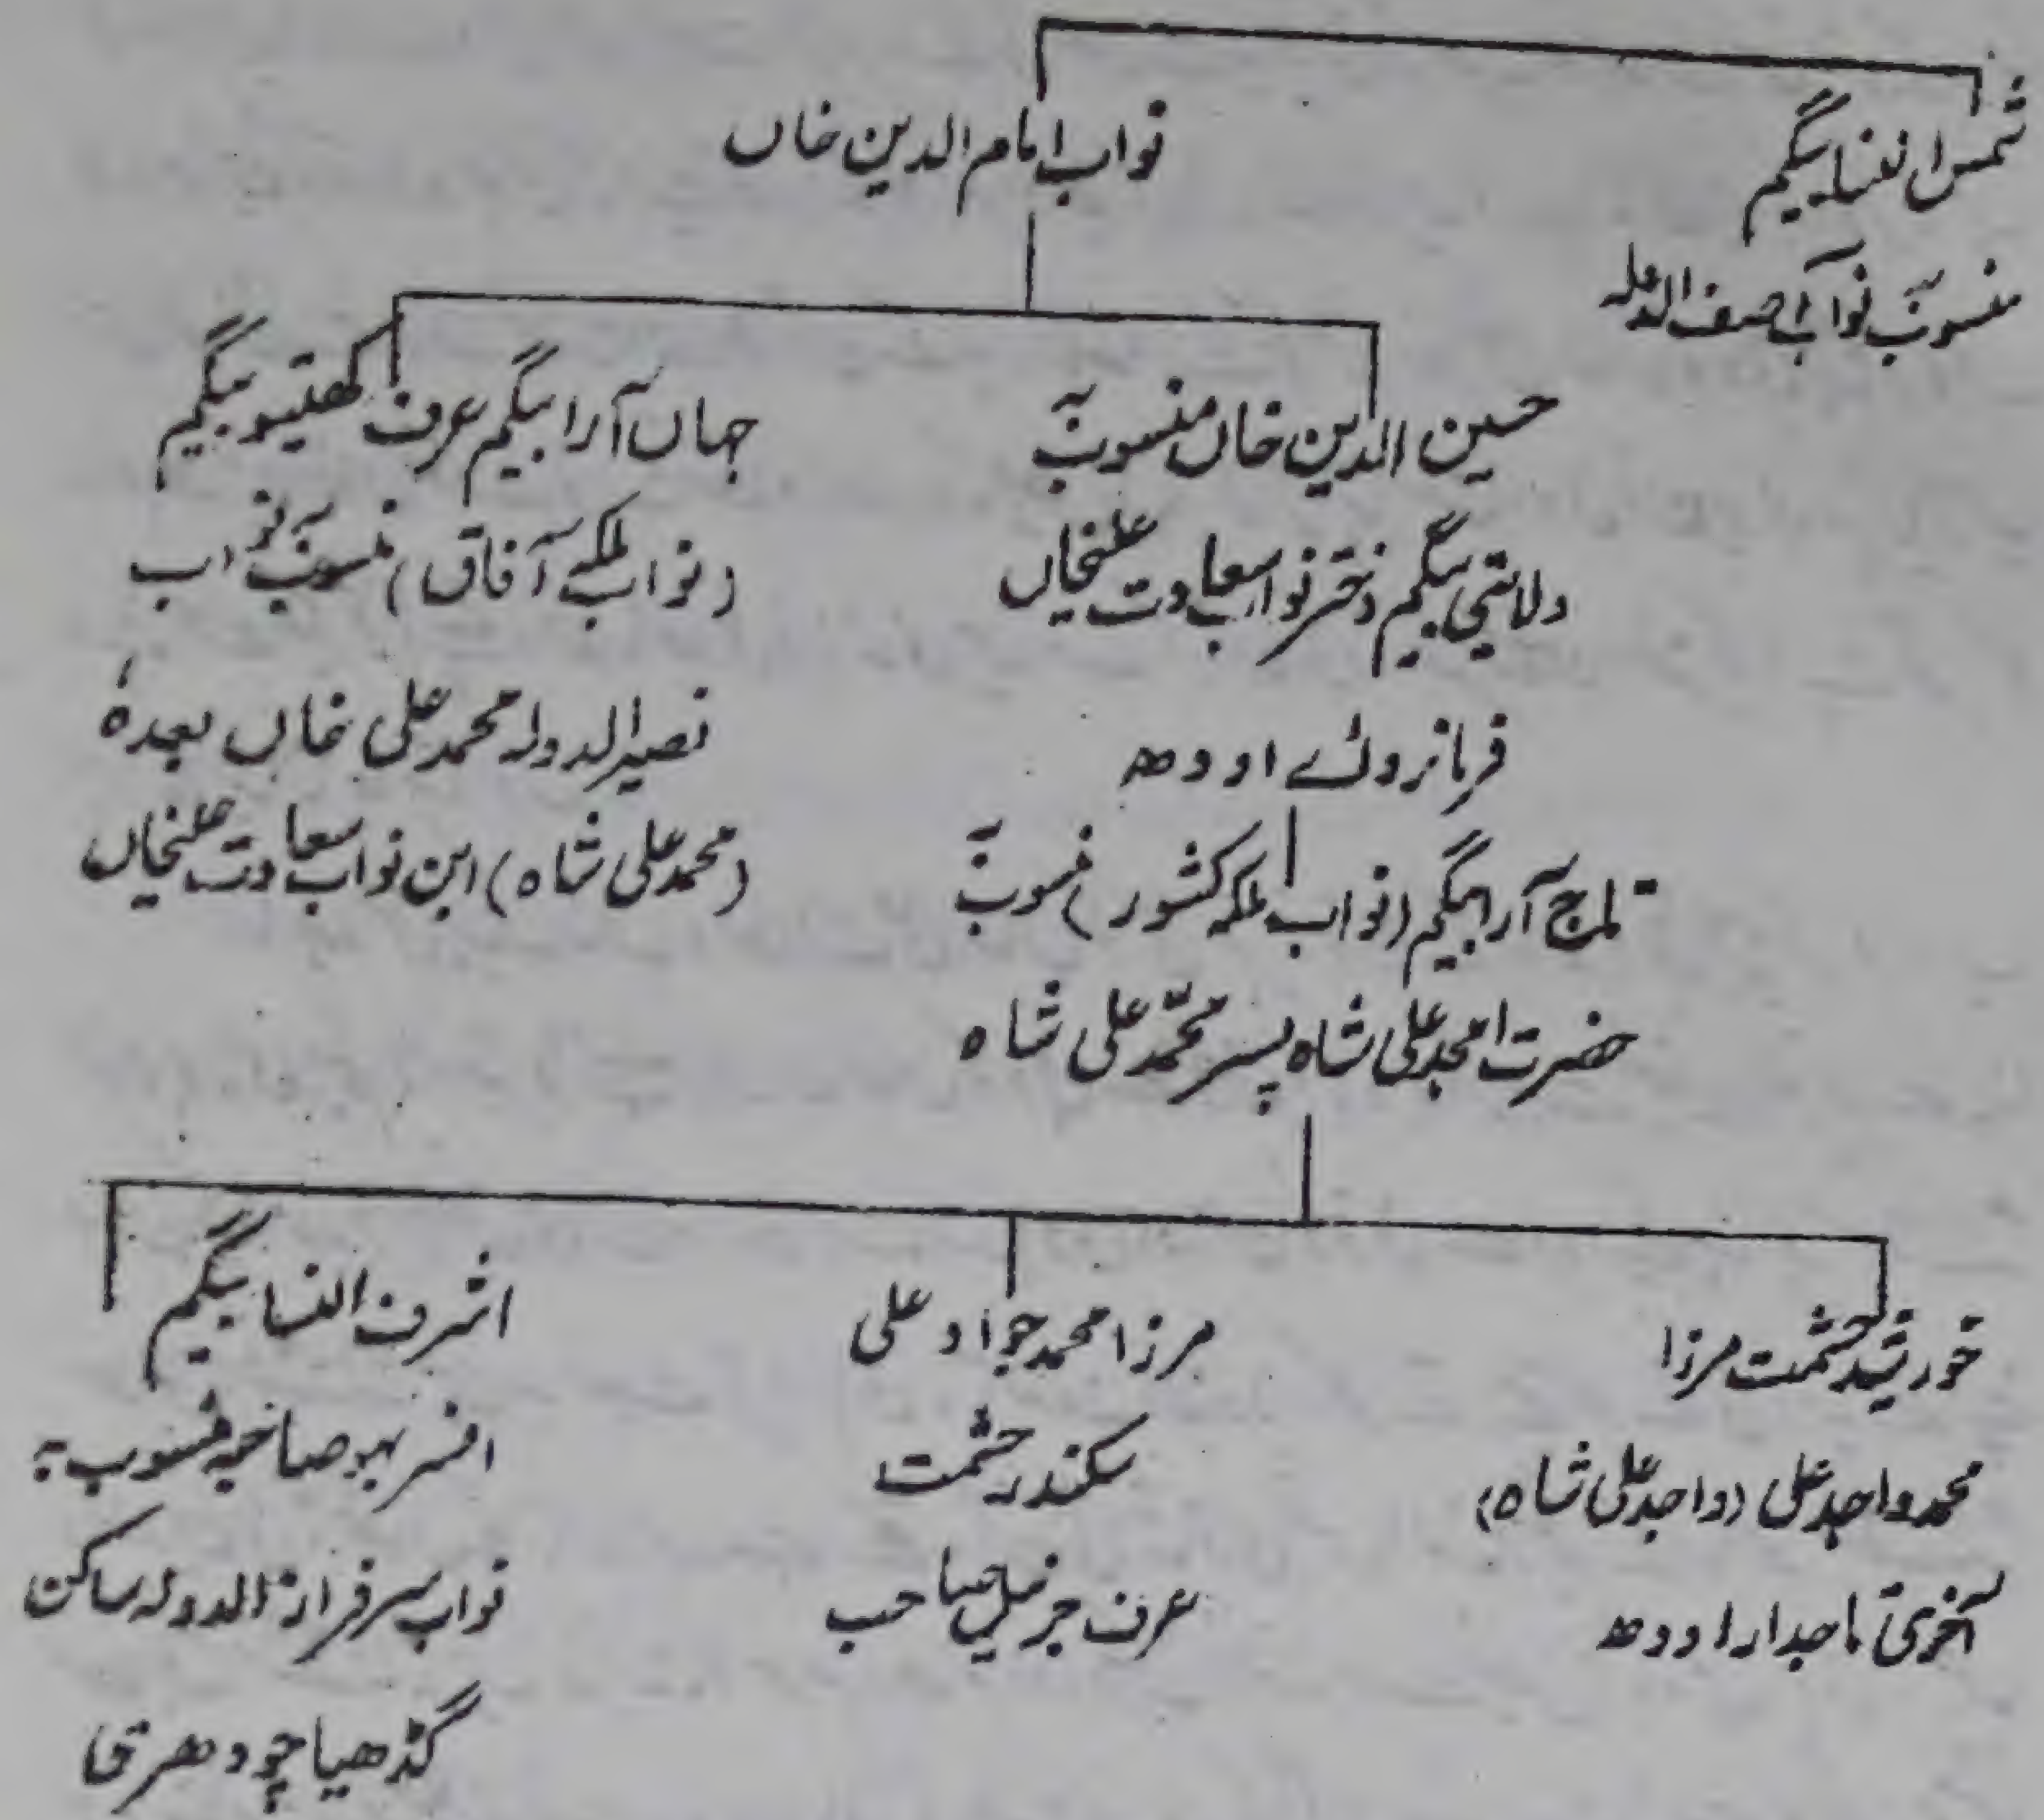 شمس النسا بیگم
منسوب بہ نواب آصف الدولہ
نواب امام الدین خاں
حسین الدین خاں منسوب بہ
ولایتی بیگم دختر نواب سعادت علیخاں
فرمانروائے اودھ
جہاں آرا بیگم عرف کھیتو بیگم
(نواب ملکۂ آفاق) منسوب بہ نواب
نصیرالدولہ محمد علی خاں بعدہٗ
(محمد علی شاہ) ابن نواب سعادت علیخاں
تاج آرا بیگم (نواب ملکہ کشور) منسوب بہ
حضرت امجد علی شاہ پسر محمّد علی شاہ
خورشید حشمت مرزا
محمد واجد علی (واجد علی شاہ)
آخری تاجدار اودھ
مرزا محمد جواد علی
سکندر حشمت
عرف جرنیل صاحب
اشرف النسا بیگم
افسر بہو صاحبہ منسوب بہ
نواب سرفراز الدولہ ساکن
گڈھیا چودھری